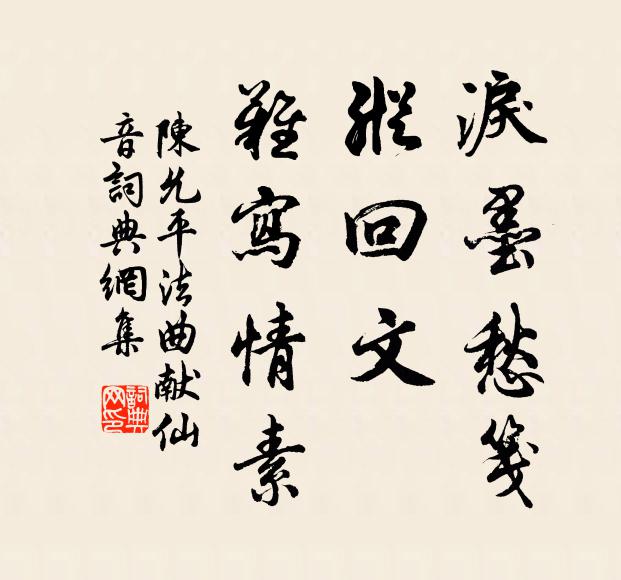 淚墨愁箋
縱回文
難寫情素
陳允平法曲献仙
音詞典網集
詞典
网印